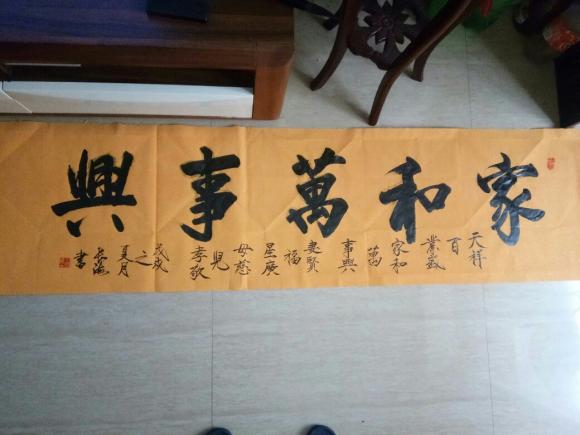 家和萬事興
天祥
百
業盛
家和
萬
事興
妻賢
福
星廣
母慈
兒
孝敬
戊戌
之
夏月
書